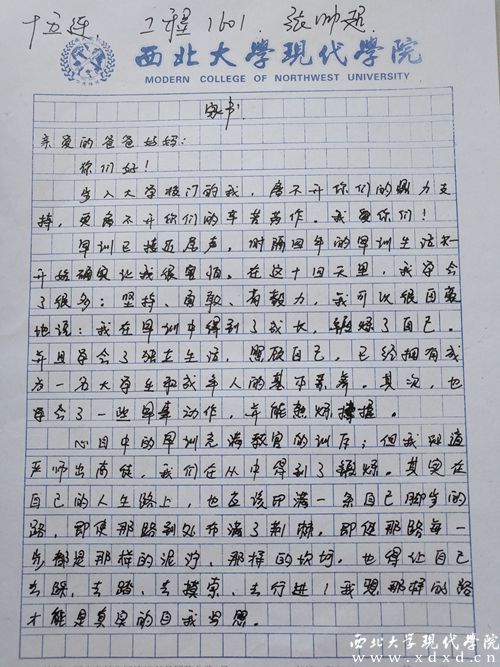 十五连 工程1601. 张帅超.
西北大學现代學院
MODERN COLLEGE OF NORTHWEST UNIVERSITY
家书
亲爱的爸爸妈妈:
你们好!
步入大学校门的我,离不开你们的鼎力支
持,更离不开你们的辛苦劳作。我爱你们!
军训已接近尾声,时隔四年的军训生活一
开始确实让我很害怕。在这十四天里,我学会
了很多:坚持、勇敢、有毅力,我可以很自豪
地说:我在军训中得到了成长,锻炼了自己。
并且学会了独立生活,照顾自己,已经拥有成
为一名大学生和成年人的基本素养。其次,也
学会了一些军事动作,并能熟练掌握。
心目中的军训充满教官的训斥;但我知道
严师出高徒,我们在从中得到了锻炼。其实在
自己的人生路上,也应该印满一条自己脚步的
路,即使那路到处布满了荆棘,即使那路每一
步都是那样的泥泞,那样的坎坷。也得让自己
去踩、去踏、去摸索、去行进!我想那样的路
才能是真实的自我
西北大学现代学院
www.xdxd.cn